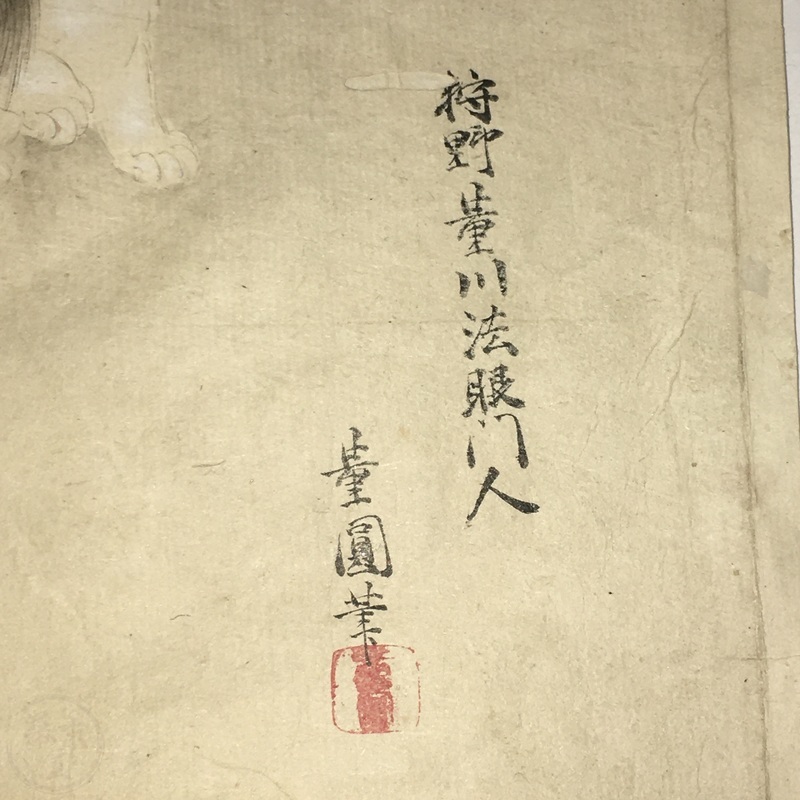 狩野董川法眼門人
董圓筆